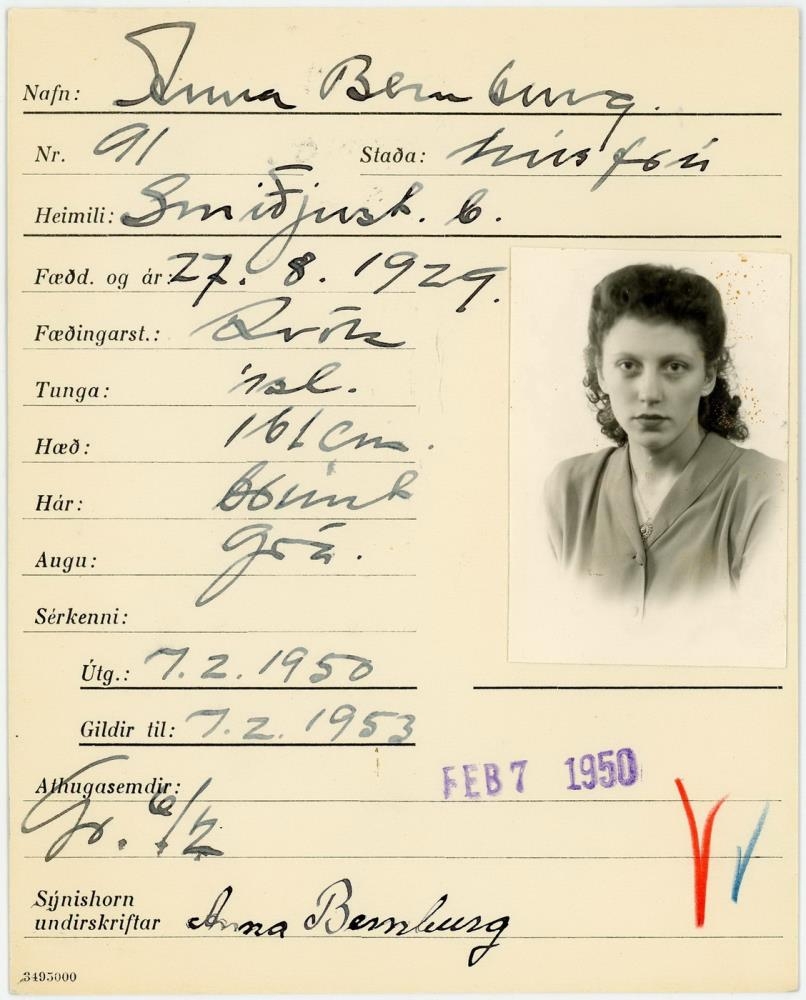 Nafn: Anna Bernburg.
Nr. 91 Staða: húsfrú
Heimili: Smiðjust. 6.
Fædd. og ár: 27. 8. 1929.
Fæðingarst.: Rvík
Tunga: ísl.
Hæð: 161 cm.
Hár:
Augu: Grá.
Sérkenni:
Útg.: 7.2.1950
Gildir til: 7.2.1953
FEB 7 1950
Athugasemdir:
Gr. 6/2
Sýnishorn
undirskriftar Anna Bernburg
3495000